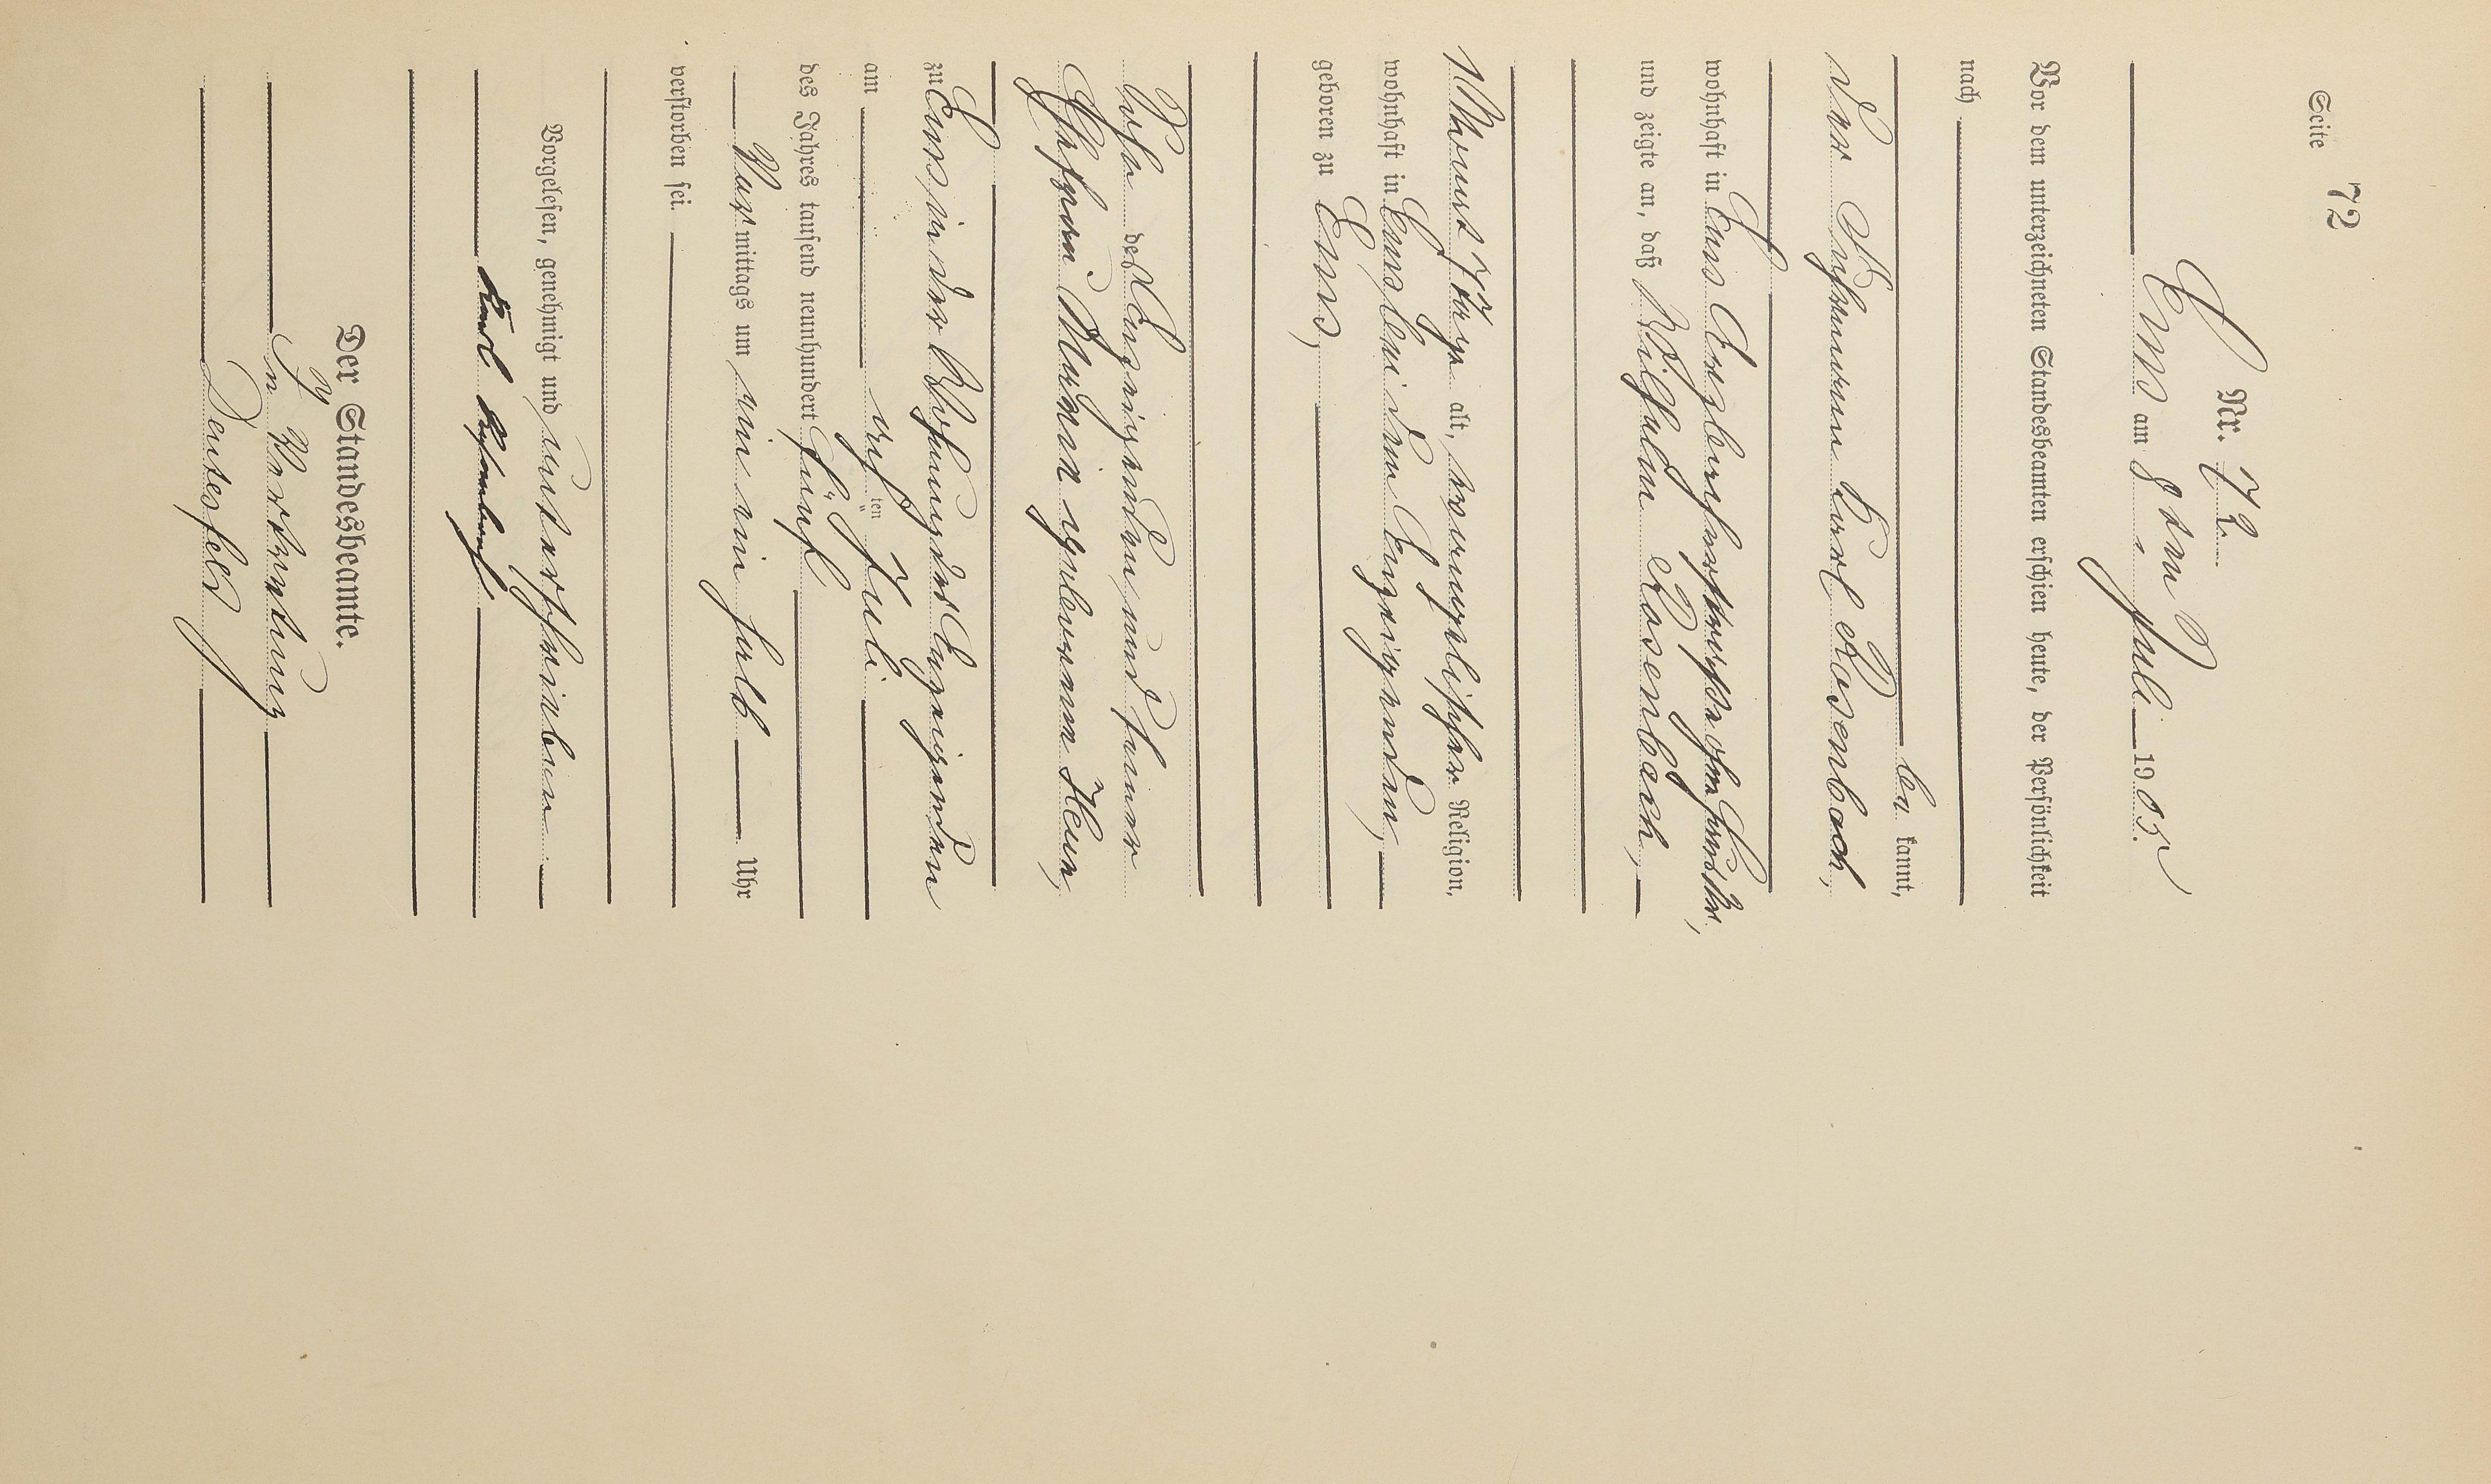 Seite 72
Nr. 72.
Ems am 8ten Juli 1905.
Vor dem unterzeichneten Standesbeamten erschien heute, der Persönlichkeit
nach
be kannt,
der Fuhrmann Karl Rosenbach,
wohnhaft in Ems
und zeigte an, daß Wilhelm Rosenbach,
1 Monat 7 Tage alt, evangelischer Religion,
wohnhaft in Ems bei dem Anzeigenden,
geboren zu Ems,
Sohn des Anzeigenden, und seiner
Ehefrau geborenen Heun,
zu Ems, in der Wohnung des Anzeigenden
am acht ten Juli
des Jahres tausend neunhundert fünf
Vor mittags um ein ein halb Uhr
verstorben sei.
Vorgelesen, genehmigt und unterschrieben
Karl Rosenbach
Der Standesbeamte.
In Vertretung